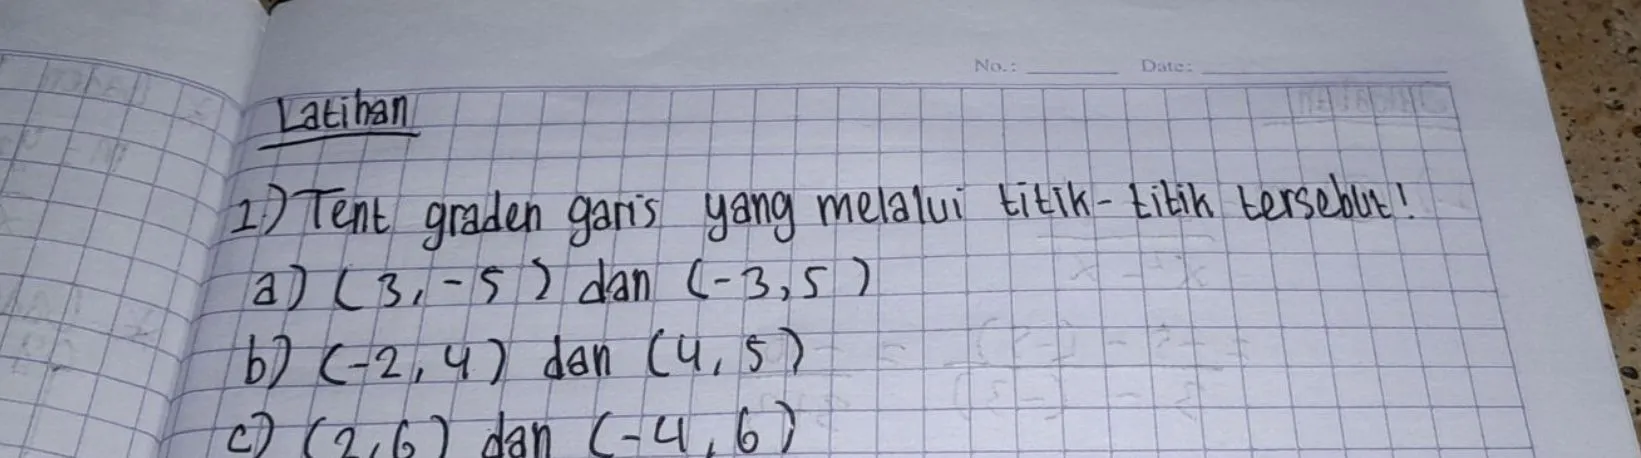 No.: Date:
Latihan
1) Tent graden garis yang melalui titik-titik tersebut!
a) (3,-5) dan (-3,5)
b) (-2,4) dan (4,5)
c) (2,6) dan (-4,6)